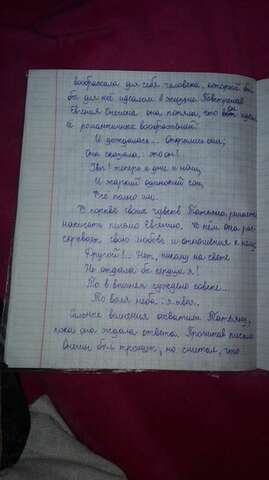 воображала для себя человека, который бы
бы для неё идеалом в жизни. Повстречав
Евгения Онегина она поняла, что он
её романтичное воображение:
И дождалась... Открылись очи;
Она сказала: это он!
Увы! теперь и дни и ночи,
И жаркий одинокий сон,
Всё полно им.
В порыве своих чувств Татьяна решает
написать письмо Евгению. В нём она рас-
скрывает свою любовь и отношения к нему:
Другой!.. Нет, никому на свете
Не отдала бы сердца я!
То в вышнем суждено совете...
То воля неба: я твоя.
Сильное волнения охватили Татьяну,
пока она ждала ответа. Прочитав письмо
Онегин был тронут, но считал, что